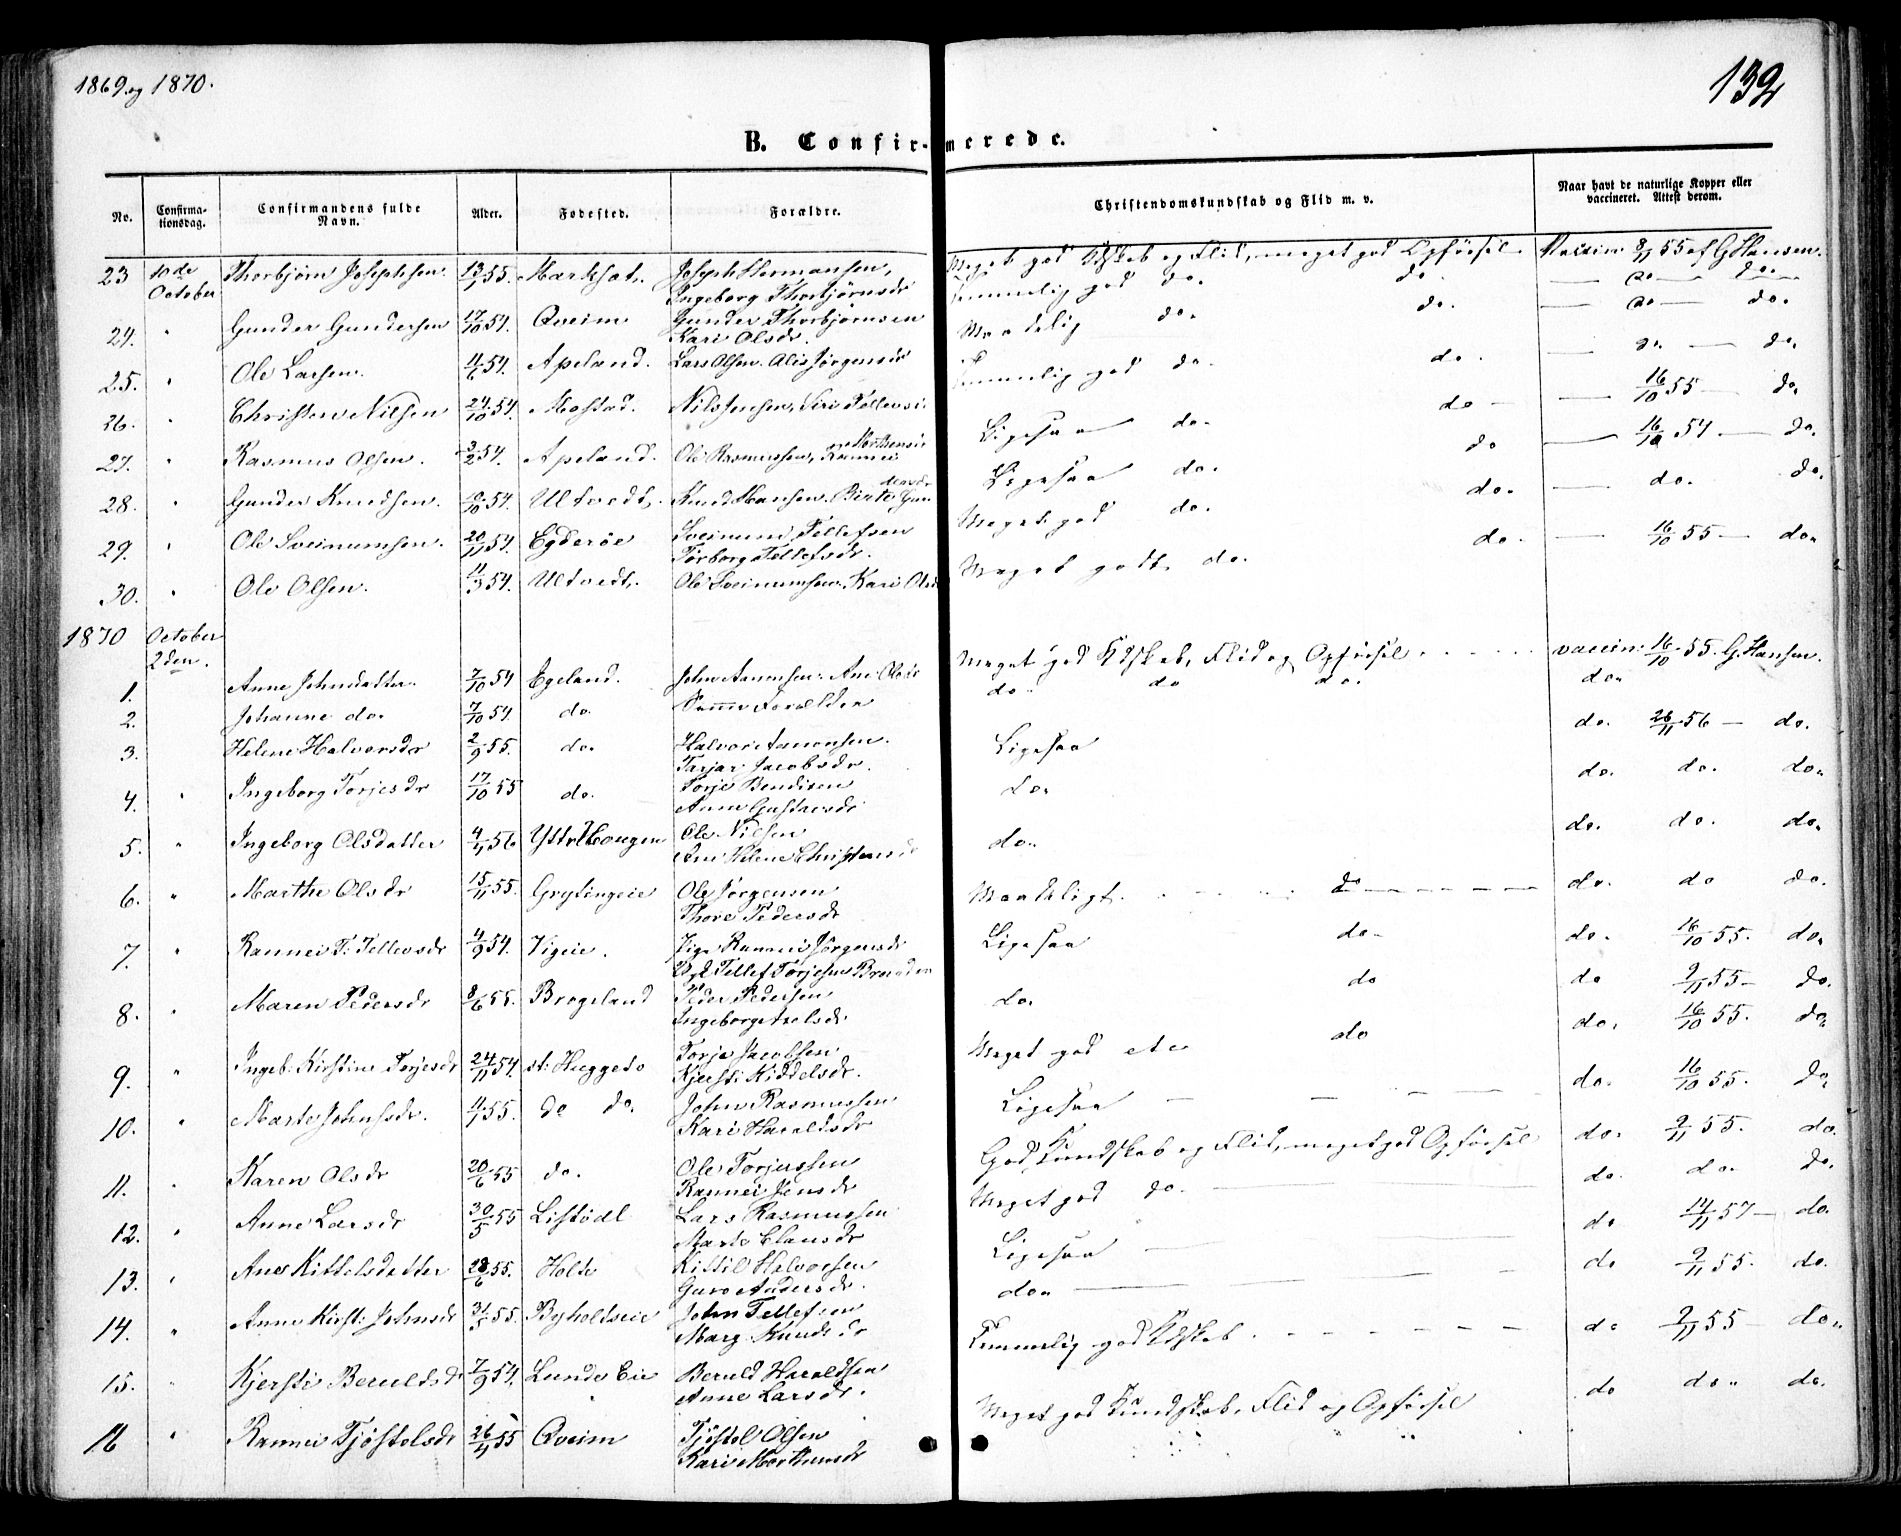 1869 og 1870.
132
B. Confirmerede.
No. Confirmationsdag. Confirmandens fulde Navn. Alder. Fødested. Forældre. Christendomskundskab og Flid m. v. Naar havt de naturlige Kopper eller vaccineret. Attest derom.
23 10de October Thorbjørn Josephsen. 13/1 55. Marksæt. Joseph Hermansen, Ingeborg Thorbjørnsdr Meget god Kdskab og Flid, meget god Opførsel. Vaccin. 8/11 55 af G Hansen.
24. " Gunder Gundersen 17/10 54. Qveim Gunder Thorbjørnsen Kari Olsdr. Temmelig god do. do. — do — do.
25. " Ole Larsen. 4/6 54. Apeland. Lars Olsen. Alis Jørgensdr Maadelig do. do. — do — do.
26. " Christen Nilsen 24/10 54. Mostad. Nils Jensen, Siri Tellevsdr Temmelig god do. do. — do — do.
27. " Rasmus Olsen. 3/2 54. Apeland. Ole Rasmussen, Rannei Mortensdr Ligesaa do. do — 16/10 55 — do.
28. " Gunder Knudsen. 9/10 54. Ultvedt. Knud Hansen. Birte Gundersdr Ligesaa do. do — 16/10 54 — do.
29. " Ole Sveinumsen. 20/11 54. Egderøe Sveinum Tellefsen Torborg Tellefsdr. Meget god do. do. — do. do.
30. " Ole Olsen. 11/3 54. Ultvedt, Ole Sveinumsen, Kari Olsdr Meget godt. do. do. — 16/10 55 — do.
1870 October 2den.
1. Anne Johnsdatter. 7/10 54 Egeland. John Aanonsen. Ane Olsdr Meget god Kdskab, Flid og Opførsel vaccin. 16/10 55. G. Hansen.
2. Johanne do. 7/10 54. do. Samme Forældre do. do do. do.
3. Helene Halvorsdr 2/9 55. do. Halvor Aanonsen. Tarjer Jacobsdr. Ligesaa do. 26/11 56 — do.
4. " Ingeborg Torjesdr 17/10 55 do. Torje Bendixen Anne Gustavsdr do. do. do. do.
5. " Ingeborg Olsdatter 4/1 56 Ystr Hougen Ole Nilsen Ane Helene Christensdr do. do. do. do.
6. " Marthe Olsdr 15/11 55. Grytingeie Ole Jørgensen Thore Pedersdr Maadeligt. do do. do do.
7. " Rannei T. Tellevsdr 4/9 54. Vigeie. Pige Rannei Jørgensdr Ugk Tellef Torjesen Ligesaa do. do. 16/10 55. do.
8. " Maren Pedersdr 8/6 55. Brogeland Peder Pedersen Ingeborg Axelsdr. do. do do 2/11 55 — do.
9. " Ingeb. Kirstine Torjesdr 24/11 54. st. Huggeto Torje Jacobsen Kjersti Kiddelsdr. Meget god etc do do. 16/10 55. do
10. " Marte Johnsdr. 4/1 55. do do. John Rasmussen Kari Haraldsdr Ligesaa do. 16/10 55. do
11. " Karen Olsdr 20/6 55 do. Ole Torjussen Rannei Jensdr God Kundskab og Flid, meget god Opførsel do. 2/11 55. do.
12. " Anne Larsdr 30/5 55 Listødl Lars Rasmussen Marte Clausdr Meget god do. do. do. do.
13. " Ane Kittelsdatter 28/6 55. Holte Kittil Halvorsen Guro Andersdr. Ligesaa do 14/11 57 — do.
14. " Anne Kirst. Johnsdr 31/5 55. Byholtseie John Tellefsen Marg. Knudsdr do. do 2/11 55. do.
15. " Kjersti Beruldsdr 7/9 54. Lunde Eie Beruld Haraldsen Anne Larsdr. Temmelig god Kdskab. do 2/11 55 — do.
16 " Rannei Tjøstolsdr 26/11 55 Qveim Tjøstol Olsen Kari Mortensdr Meget god Kundskab, Flid og Opførsel do do. do.